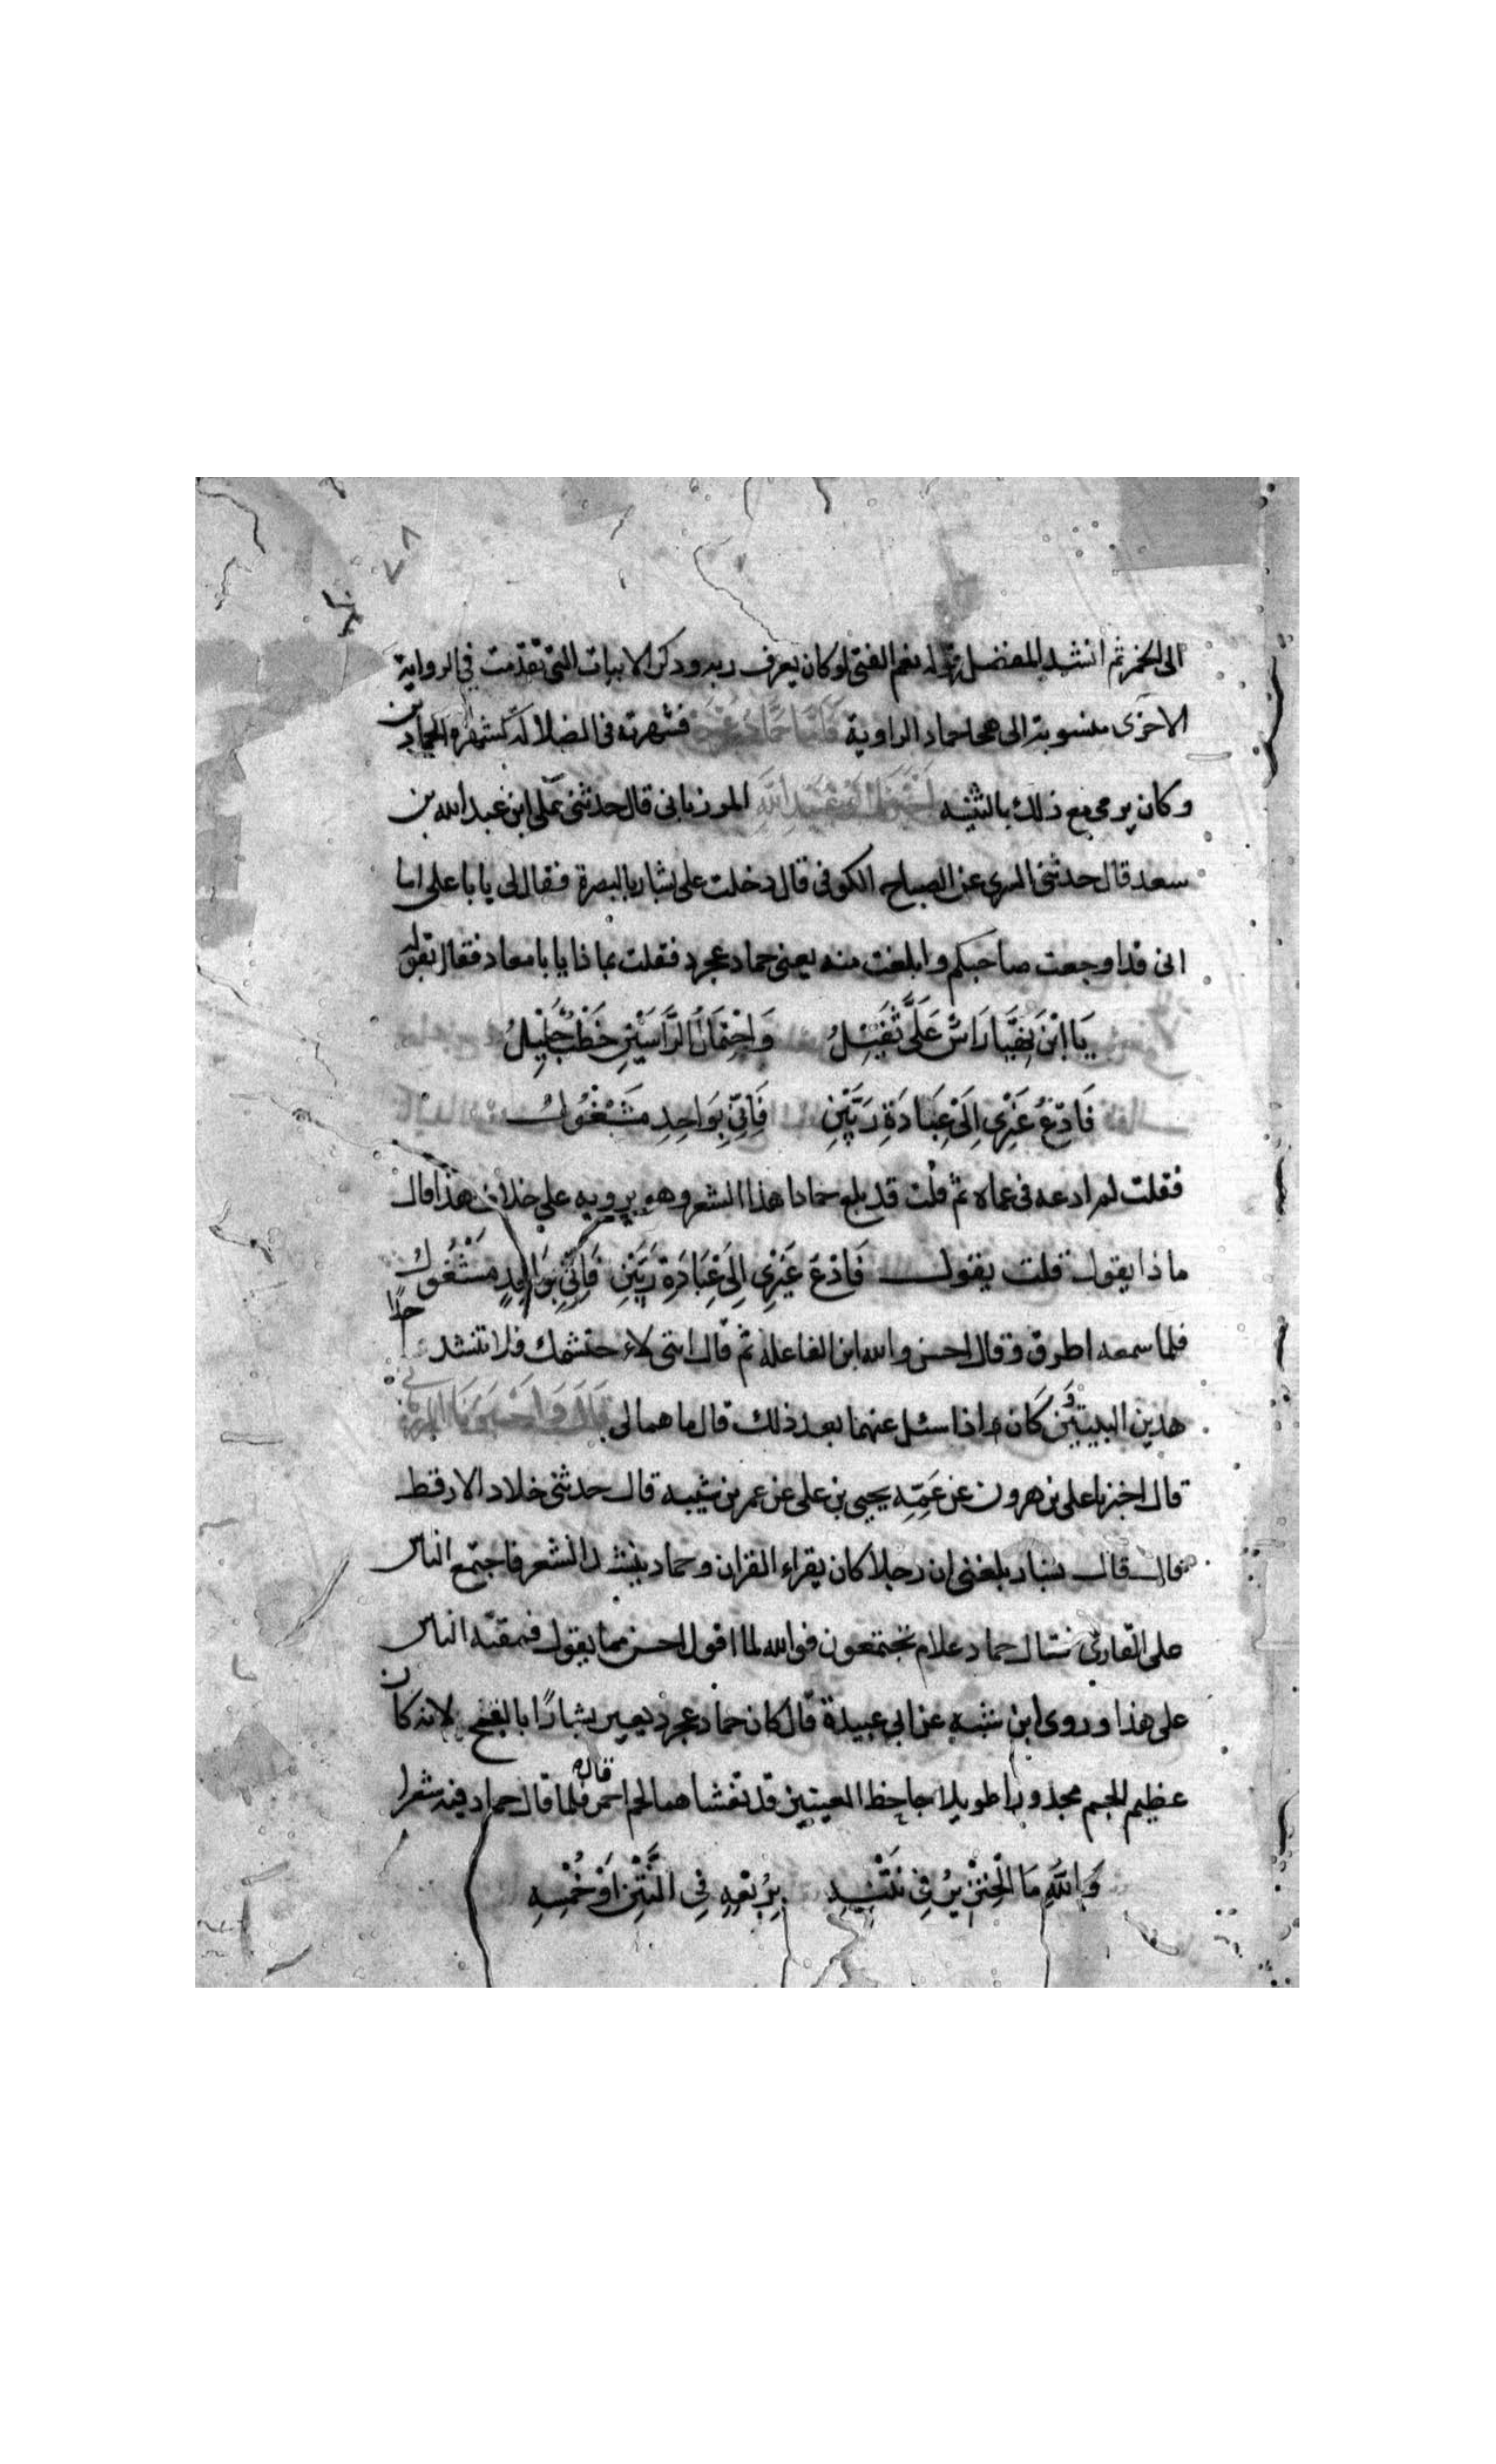 ٧٨
الى الخمر ثم انشد المفضل قوله نعم الفتى لو كان يعرف ربه وذكر الابيات التى تقدمت فى الرواية
الاخرى منسوبة الى هجا حماد الراوية فَاَمَّا حَمَّادُ عَجْرَد فشهرته فى الضلالة كشهرة الحمادين
وكان يرمى مع ذلك بالتثنيه اَخْبَرَنَا اَبُو عُبَيْدِ اللّٰهِ المرزبانى قال حدثنى على ابن عبد الله بن
سعد قال حدثنى السرى عن الصباح الكوفى قال دخلت على بشار بالبصرة فقال لى يابا على اما
انى قد اوجعت صاحبكم وابلغت منه يعنى حماد عجرد فقلت بماذا يابا معاذ فقال بقولى
يَا ابْنَ نِهْيَا رَاسٌ عَلَىَّ ثَقِيْلُ وَاحْتِمَالُ الرَّاسَيْنِ خَطْبٌ جَلِيْلُ
فَادْعُ غَيْرِى اِلَى عِبَادَةِ رَبَّيْنِ فَاِنِّى بِوَاحِدٍ مَشْغُولُ
فقلت لم ادعه فى عماه ثم قلت قد بلغ حمادا هذا الشعر وهو يرويه على خلاف هذا قال
ماذا يقول قلت يقول فَادْعُ غَيْرِى اِلَى عِبَادَةِ رَبَّيْنِ فَاِنِّى بِوَاحِدٍ مَشْغُولُ
فلما سمعه اطرق وقال احسن والله ابن الفاعله ثم قال اننى لا احتشمك فلا تنشد احدا
هذين البيتين وَكَانَ اذا سئل عنهما بعد ذلك قال ما هما لى قَالَ وَاَخْبَرَنَا المرزبانى
قال اخبرنا على بن هرون عن عَمِّهِ يحيى بن على عن عمر بن شبه قال حدثنى خلاد الارقط
قال قال بشار بلغنى ان رجلا كان يقراء القران وحماد ينشد الشعر فاجتمع الناس
على القارئ فقال حماد علام تجتمعون فوالله لما اقول احسن مما يقول فمقته الناس
على هذا وروى ابن شبه عن ابى عبيدة قال كان حماد عجرد يعير بشارًا بالقبح لانه كان
عظيم الجسم مجدورا طويلا جاحظ العينين قد تغشاهما لحم احمر قال فلما قال حماد فيه شعرا
وَاللّٰهِ مَا الْخِنْزِيرُ فِى نَتْنِهِ بِرُبْعِهِ فِى النَّتْنِ اَوْ خُمْسِهِ